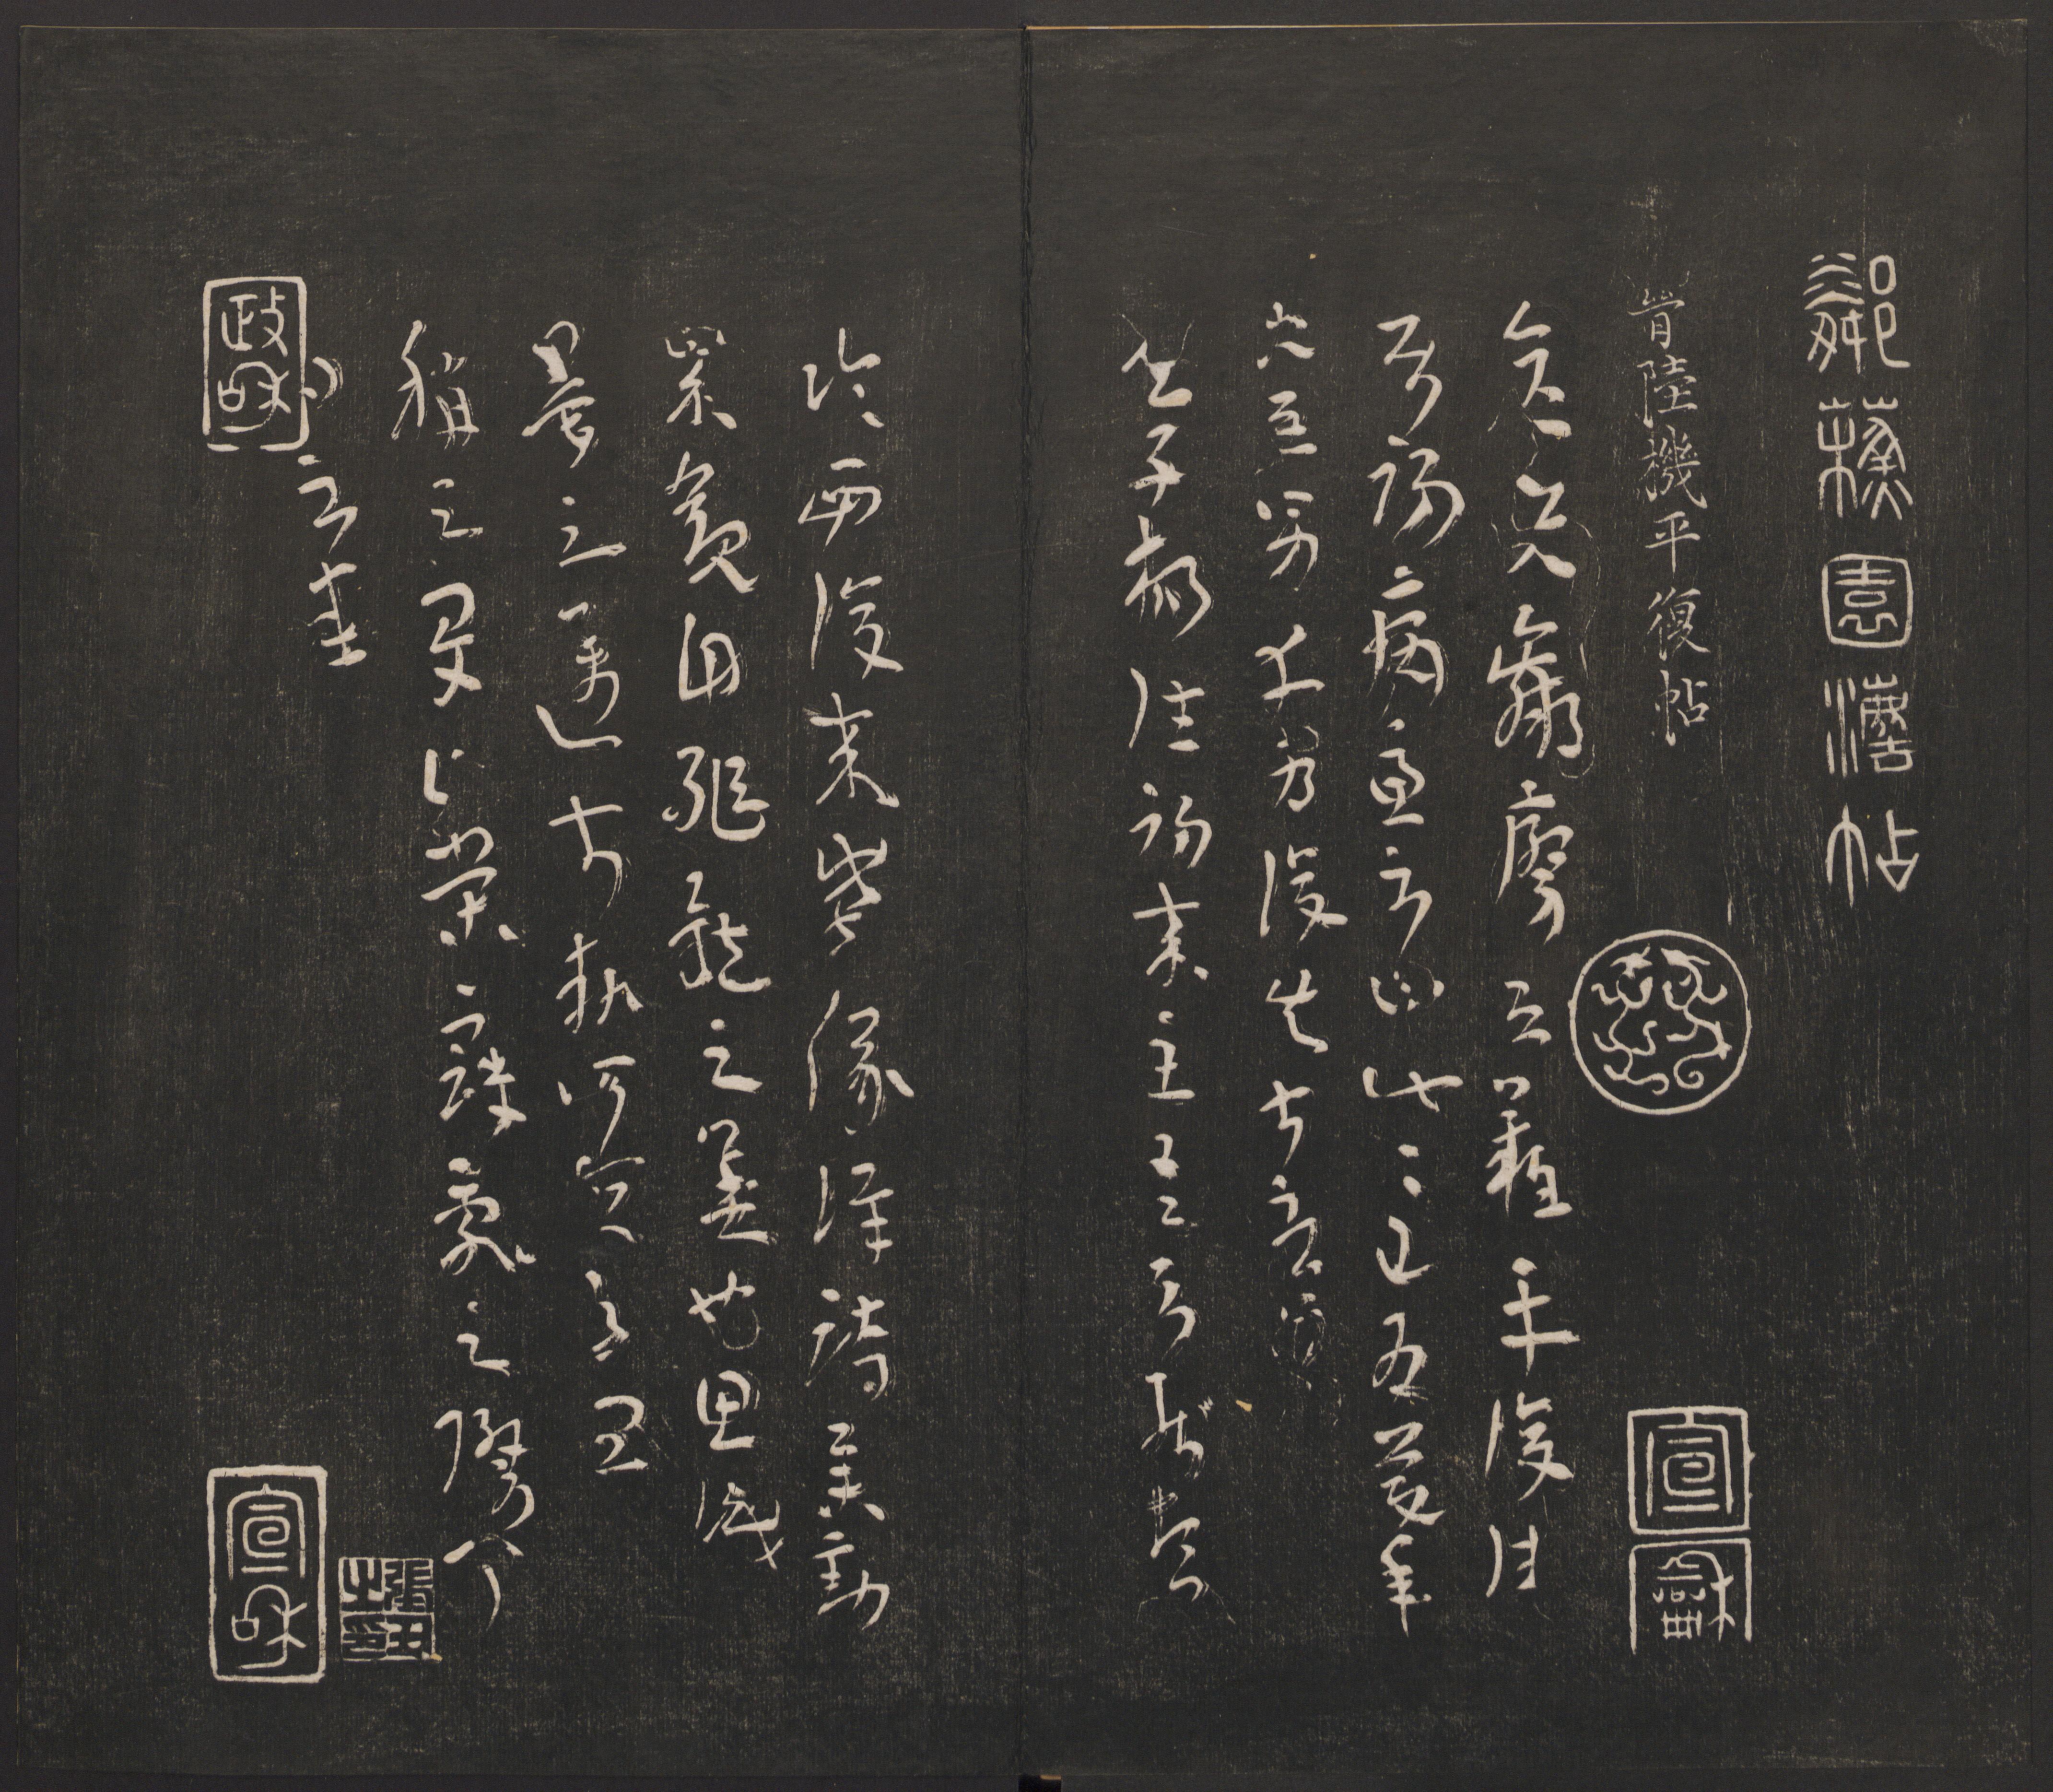 鄰蘓園灋帖
晉陸機平復帖
彥先羸瘵恐難平復往
屬初病慮不止此此已為慶承
使唯男幸為復失前憂耳
吳子楊往初來主吾不能盡
臨西復來威儀詳跱舉動
成觀自軀體之美也思識
量之邁前埶所恒有宜
稱之夏伯榮寇亂之際聞
問不悉
宣龢
政和
宣和